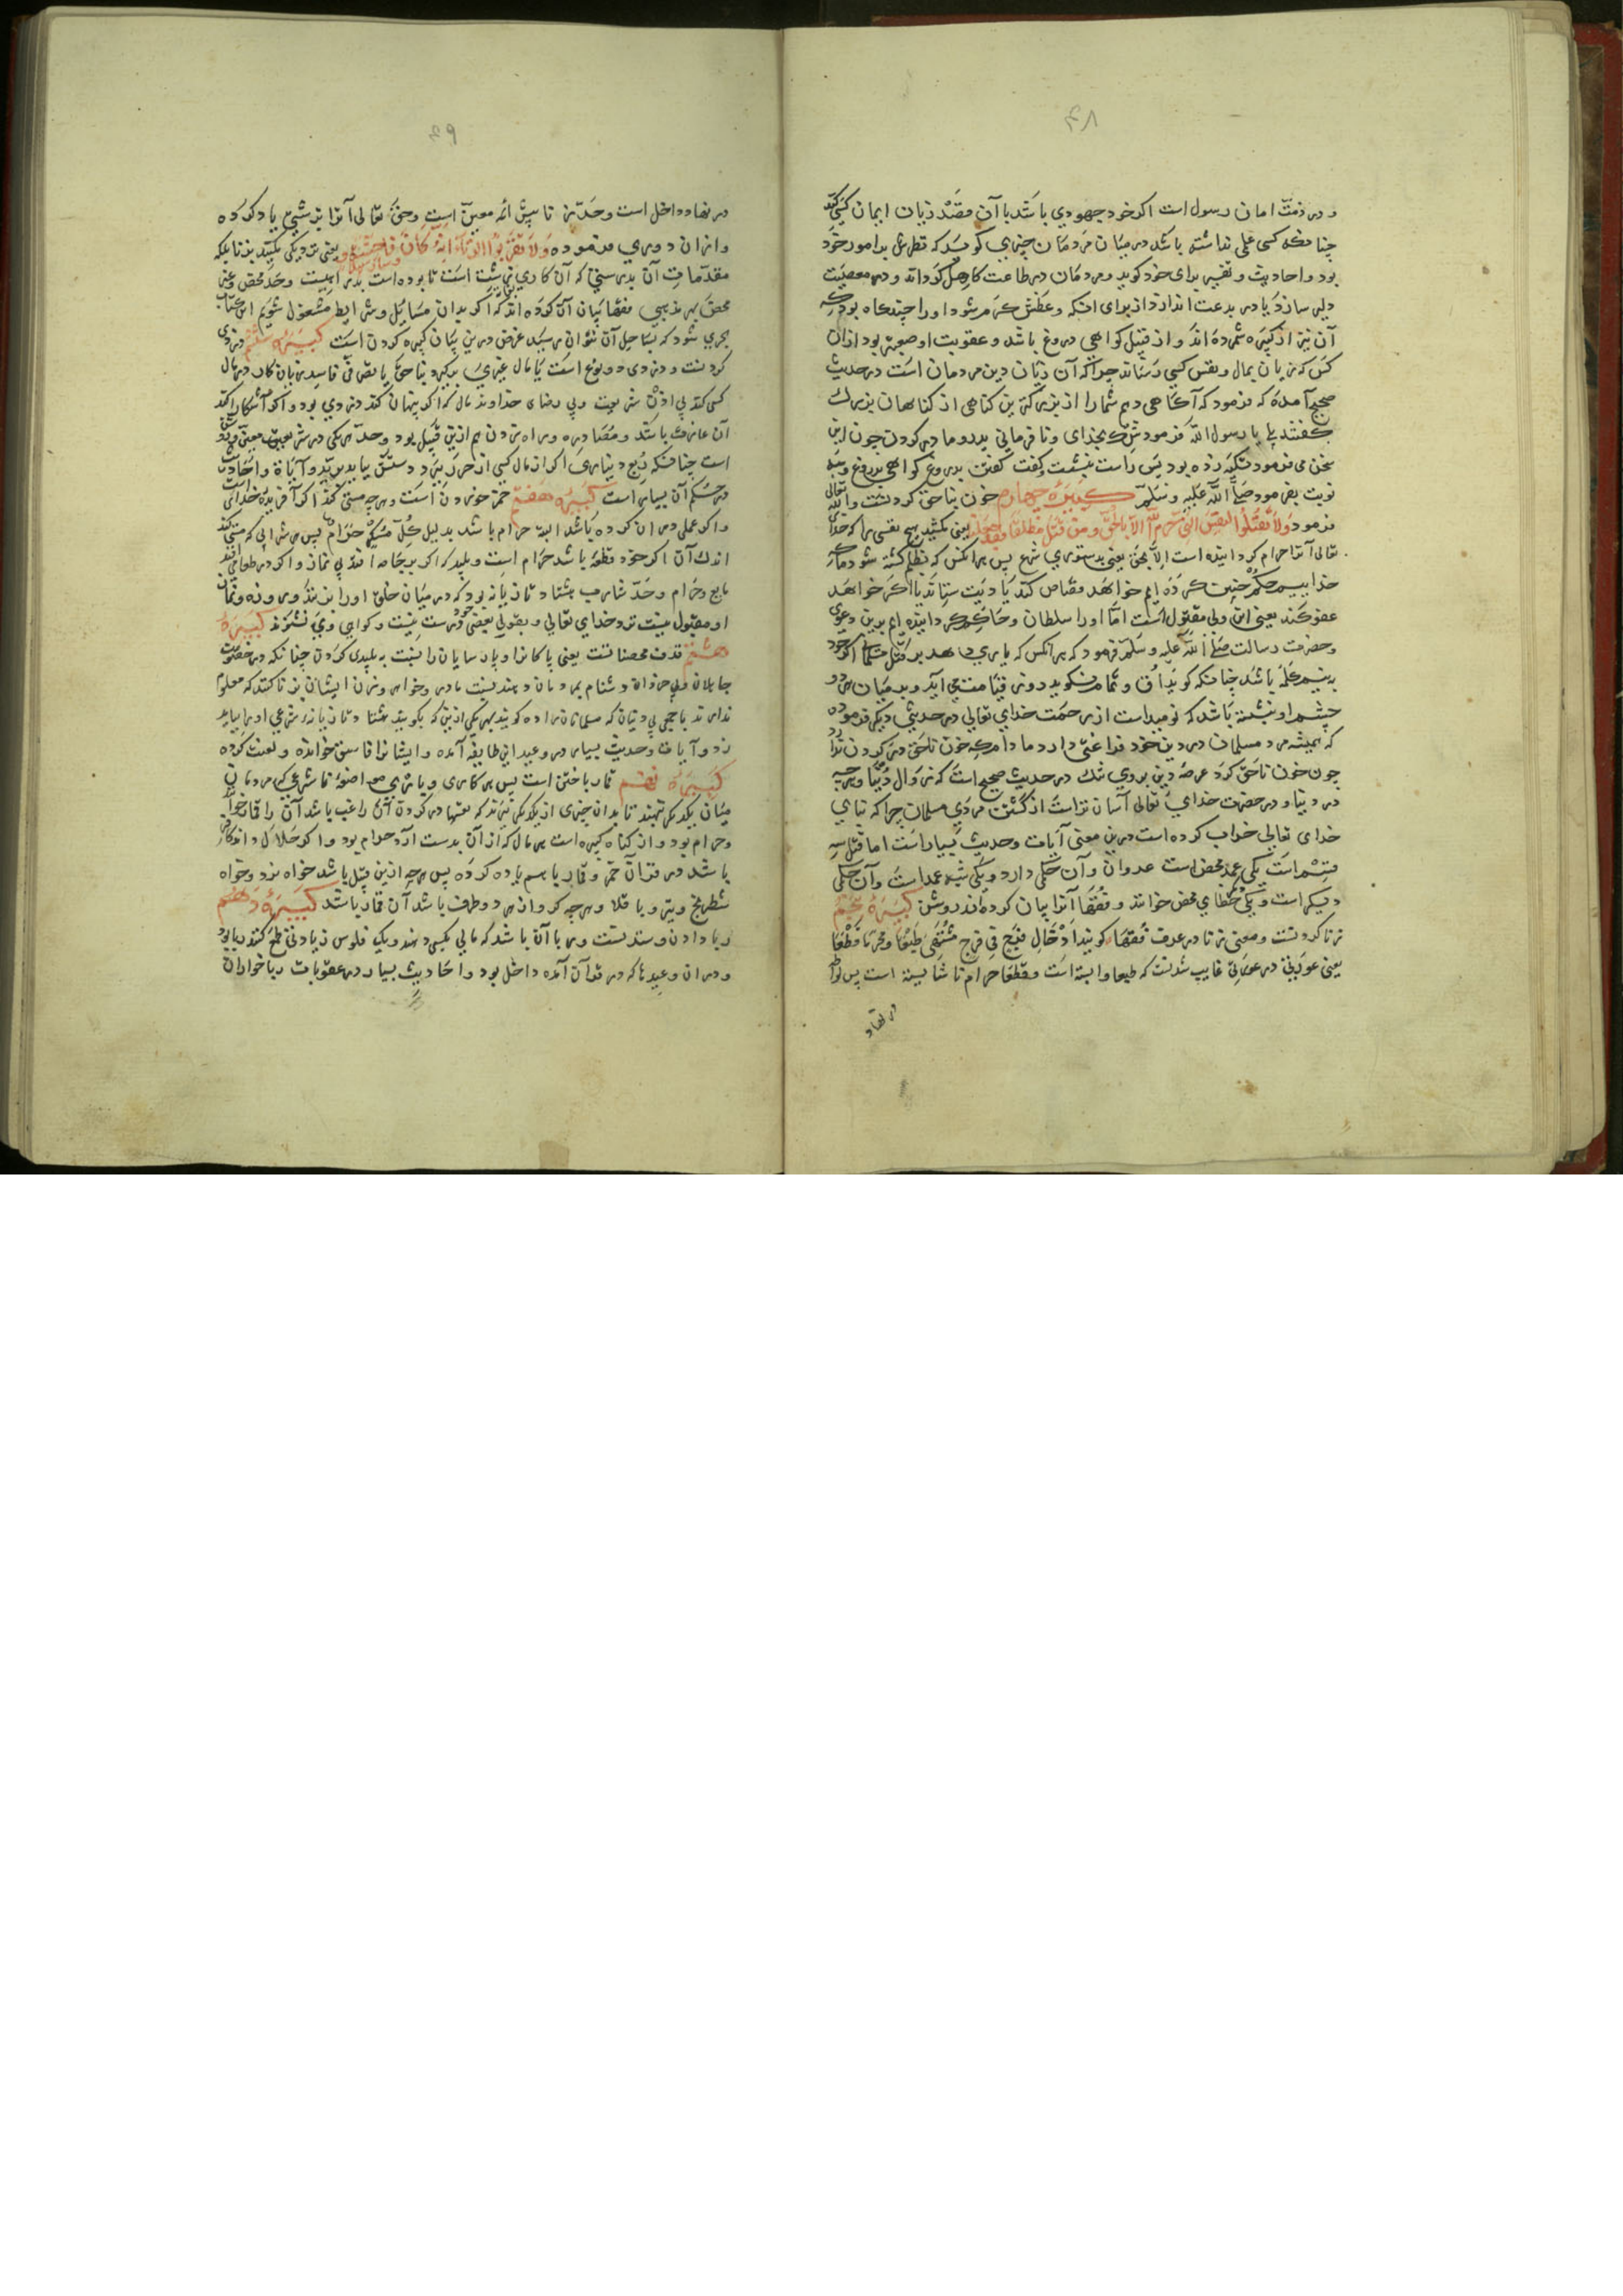 ۴۸
و در ذمت امان رسول است اکر خود جهودي باشد با آن مقصد زيان ايمان کسي کند
چنانکه کسی علمی نداشته باشد در میان مردمان چیزي کوید که قطرش بدا مور خود
بود و احادیث و تفسیر برای خود کوید و مردمان در طاعت کاهل کرداند و در معصیت
دلیر سازد یا در بدعت اندازد از برای انکه وعظش کرم شود او را چند کاه بود که
آن نیز از کبیره شمرده اند و از قبیل کواهی دروغ باشد و عقوبت او صعبتر بود از آن
کس که زیان بمال و نفس کسی رساند چرا که آن زیان دین مردمان است در حدیث
صحیح آمده که فرمود که آکاهی دهم شما را از بزرکترین کناهی از کناهان بزرك
کفتند بلی یا رسول الله فرمود شرك بخدای و نافرمانی پدر و مادر کردن چون این
سخن می فرمود تکیه زده بود پس راست بنشست و کفت کفتن بدروغ کواهی بدروغ و سه
نوبت بفرمود صلی الله علیه وسلم کبیره چهارم خون بناحق کردنست والله تعالی
فرمود ولا تقتلوا النفس التی حرم الله الا بالحق ومن قتل مظلوما فقد جعلنا یعنی نکشید هیچ نفسی را که خدای
تعالی آنرا حرام کردانیده است الا بحق یعنی بدستوري شرع پس هر انکس که بظلم کشته شود ما که
خداییم حکم چنین کرده ایم خواهد قصاص کند یا دیت ستاند یا اکر خواهد
عفو کند یعنی این ولی مقتول است اما او را سلطان و حاکم کردانیده ایم بدین دعوی
و حضرت رسالت صلی الله علیه وسلم فرمود که هر انکس که یاری دهد بر قتل مسلمان اکر خود
بنیم کلمه باشد چنانکه کوید اُق و تمام نکوید روز قیامت می آید و بر میان هر دو
چشم او نبشته باشد که نومید است از رحمت خدای تعالی در حدیثی دیکر فرموده
که همیشه مرد مسلمان در دین خود فراغتی دارد مادام که خون ناحق در کردن ندارد
چون خون ناحق کرد عرصۀ دین بروي تنك در حدیث صحیح است که زوال دنیا و هر چه
در دنیا و در حضرت خدای تعالی آسان تر است از کشتن مردي مسلمان چرا که بنای
خدای تعالی خراب کرده است در این معنی آیات و حدیث بسیار است اما قتل سه
قسم است یکی عمد محض است عدوان و آن حکمی دارد و یکی شبه عمد است و آن حکمی
دیکر است و یکی خطای محض خوانند و فقها آنرا بیان کرده اند روشن کبیره پنجم
زنا کردنست و معنی زنا در عرف فقهاء کویند ادخال فرج فی فرج مشتهی طبعا ومحرما قطعا
یعنی عورتی در عورتی غایب شدنست که طبعا وابسته است و قطعا حرام ناشایسته است پس لواطه
در نهاد
۴۹
در نهاد داخل است و حد زنا پیش ائمه معین است و حق تعالی آنرا بزشتی یاد کرده
و از ان دوری فرموده ولا تقربوا الزنا انه کان فاحشة وساء سبیلا یعنی نزدیکی مکنید بزنا بلکه
مقدمات آن بدرستی که آن کاري زشت است تا بوده است بدراهیست و حد محض و غیر
محض بهر مذهبی فقها بیان آن کرده اند که اکر بدان مسائل و شرایط مشغول شویم این کتاب
بحری شود که بساحل آن نتوان رسید غرض درین بیان کبیره کردن است کبیره ششم دزدی
کردنست و دزدی دو نوع است یا مال غیري بدکبرد بناحق یا تصرفی فاسد زیان کار در مال
کسی کند بی اذن شریعت و بی رضای خداوند مال که اکر پنهان کند دزدي بود و اکر آشکارا کند
آن غارت باشد و مصادره و راه زدن هم ازین قبیل بود و حد هر یکی در شریعت معین و روشن
است چنانکه ربع دینارى اکر از مال کسی از حرز ببرد دستش بباید برید و آیات و احادیث
در حکم آن بسیار است کبیره هفتم خمر خوردن است و هر چه مستی کند اکر آفریده خداست
و اکر عملی در ان کرده باشد البته حرام باشد بدلیل کل مسکر حرام پس هر شرابی که مستی کند
اندك آن اکر خود قطره باشد حرام است و پلید که اکر بر جامه افتد بی نماز و اکر در طعام افتد
مایع و حرام و حد شارب هشتاد تازیانه بود که در میان خلق او را بزنند و روزه و نماز
او مقبول نیست نزد خدای تعالی و بقولی بعضی خود درست نیست و کواهی وی نشنوند کبیره
هشتم قذف محصنانست یعنی پاکان را و پارسایان را نسبت به پلیدی کردن چنانکه در خصومت
جاهلان و بی خردان دشنام بمردمان دهند بنسبت مادر و خواهر و زن ایشان بزنا کنند که معلوم
ندارند یا هجی بی دینان که مسلمانان را ده کویند بهر یکی ازین که بکویند هشتاد تازیانه شرعی او را بباید
زد و آیات و حدیث بسیار در وعید این طایفه آمده و ایشان را فاسق خوانده و لعنت کرده
کبیره نهم قمار باختن است پس هر کاری و بازی
میان یکدیکر نهند تا بدان چیزی از یکدیکر ببرند که نفسها در کردن آن راغب باشد آن را قمار خوانند
و حرام بود و از کناه کبیره است هر مال که از آن بدست آرد حرام بود و اکر حلال داند کافر
باشد در قرآن خمر و قمار با هم یاد کرده پس هر چه ازین قبیل باشد خواه نرد و خواه
شطرنج و تیر و باقلا و هر چه کرو از هر دو طرف باشد آن قمار باشد کبیره دهم
ربا دادن و ستدنست و ربا آن باشد که مالی بکسی دهند و یك فلوس زیادتی طمع کنند ربا بود
و در ان وعیدها که در قرآن آمده داخل بود و احادیث بسیار در عقوبات رباخواران